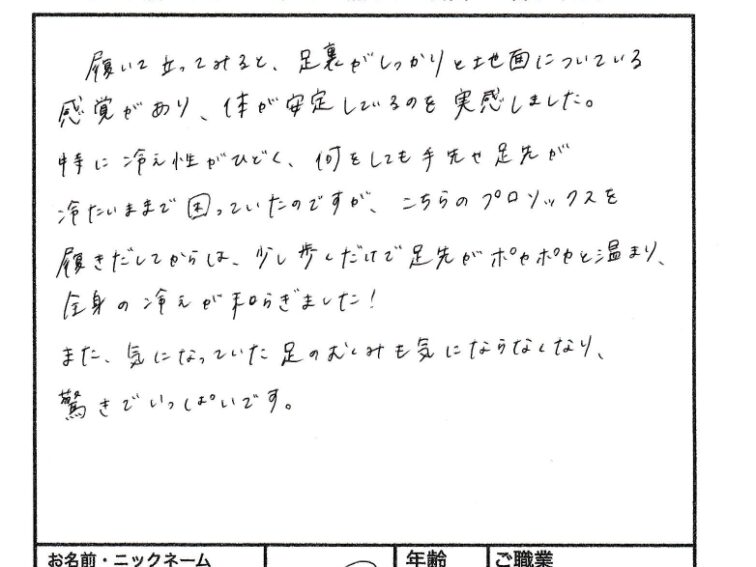 履いて立ってみると、足裏がしっかりと地面についている
感覚があり、体が安定しているのを実感しました。
特に冷え性がひどく、何をしても手先や足先が
冷たいままで困っていたのですが、こちらのプロソックスを
履きだしてからは、少し歩くだけで足先がポカポカと温まり、
全身の冷えが和らぎました!
また、気になっていた足のむくみも気にならなくなり、
驚きでいっぱいです。
お名前・ニックネーム 年齢 ご職業